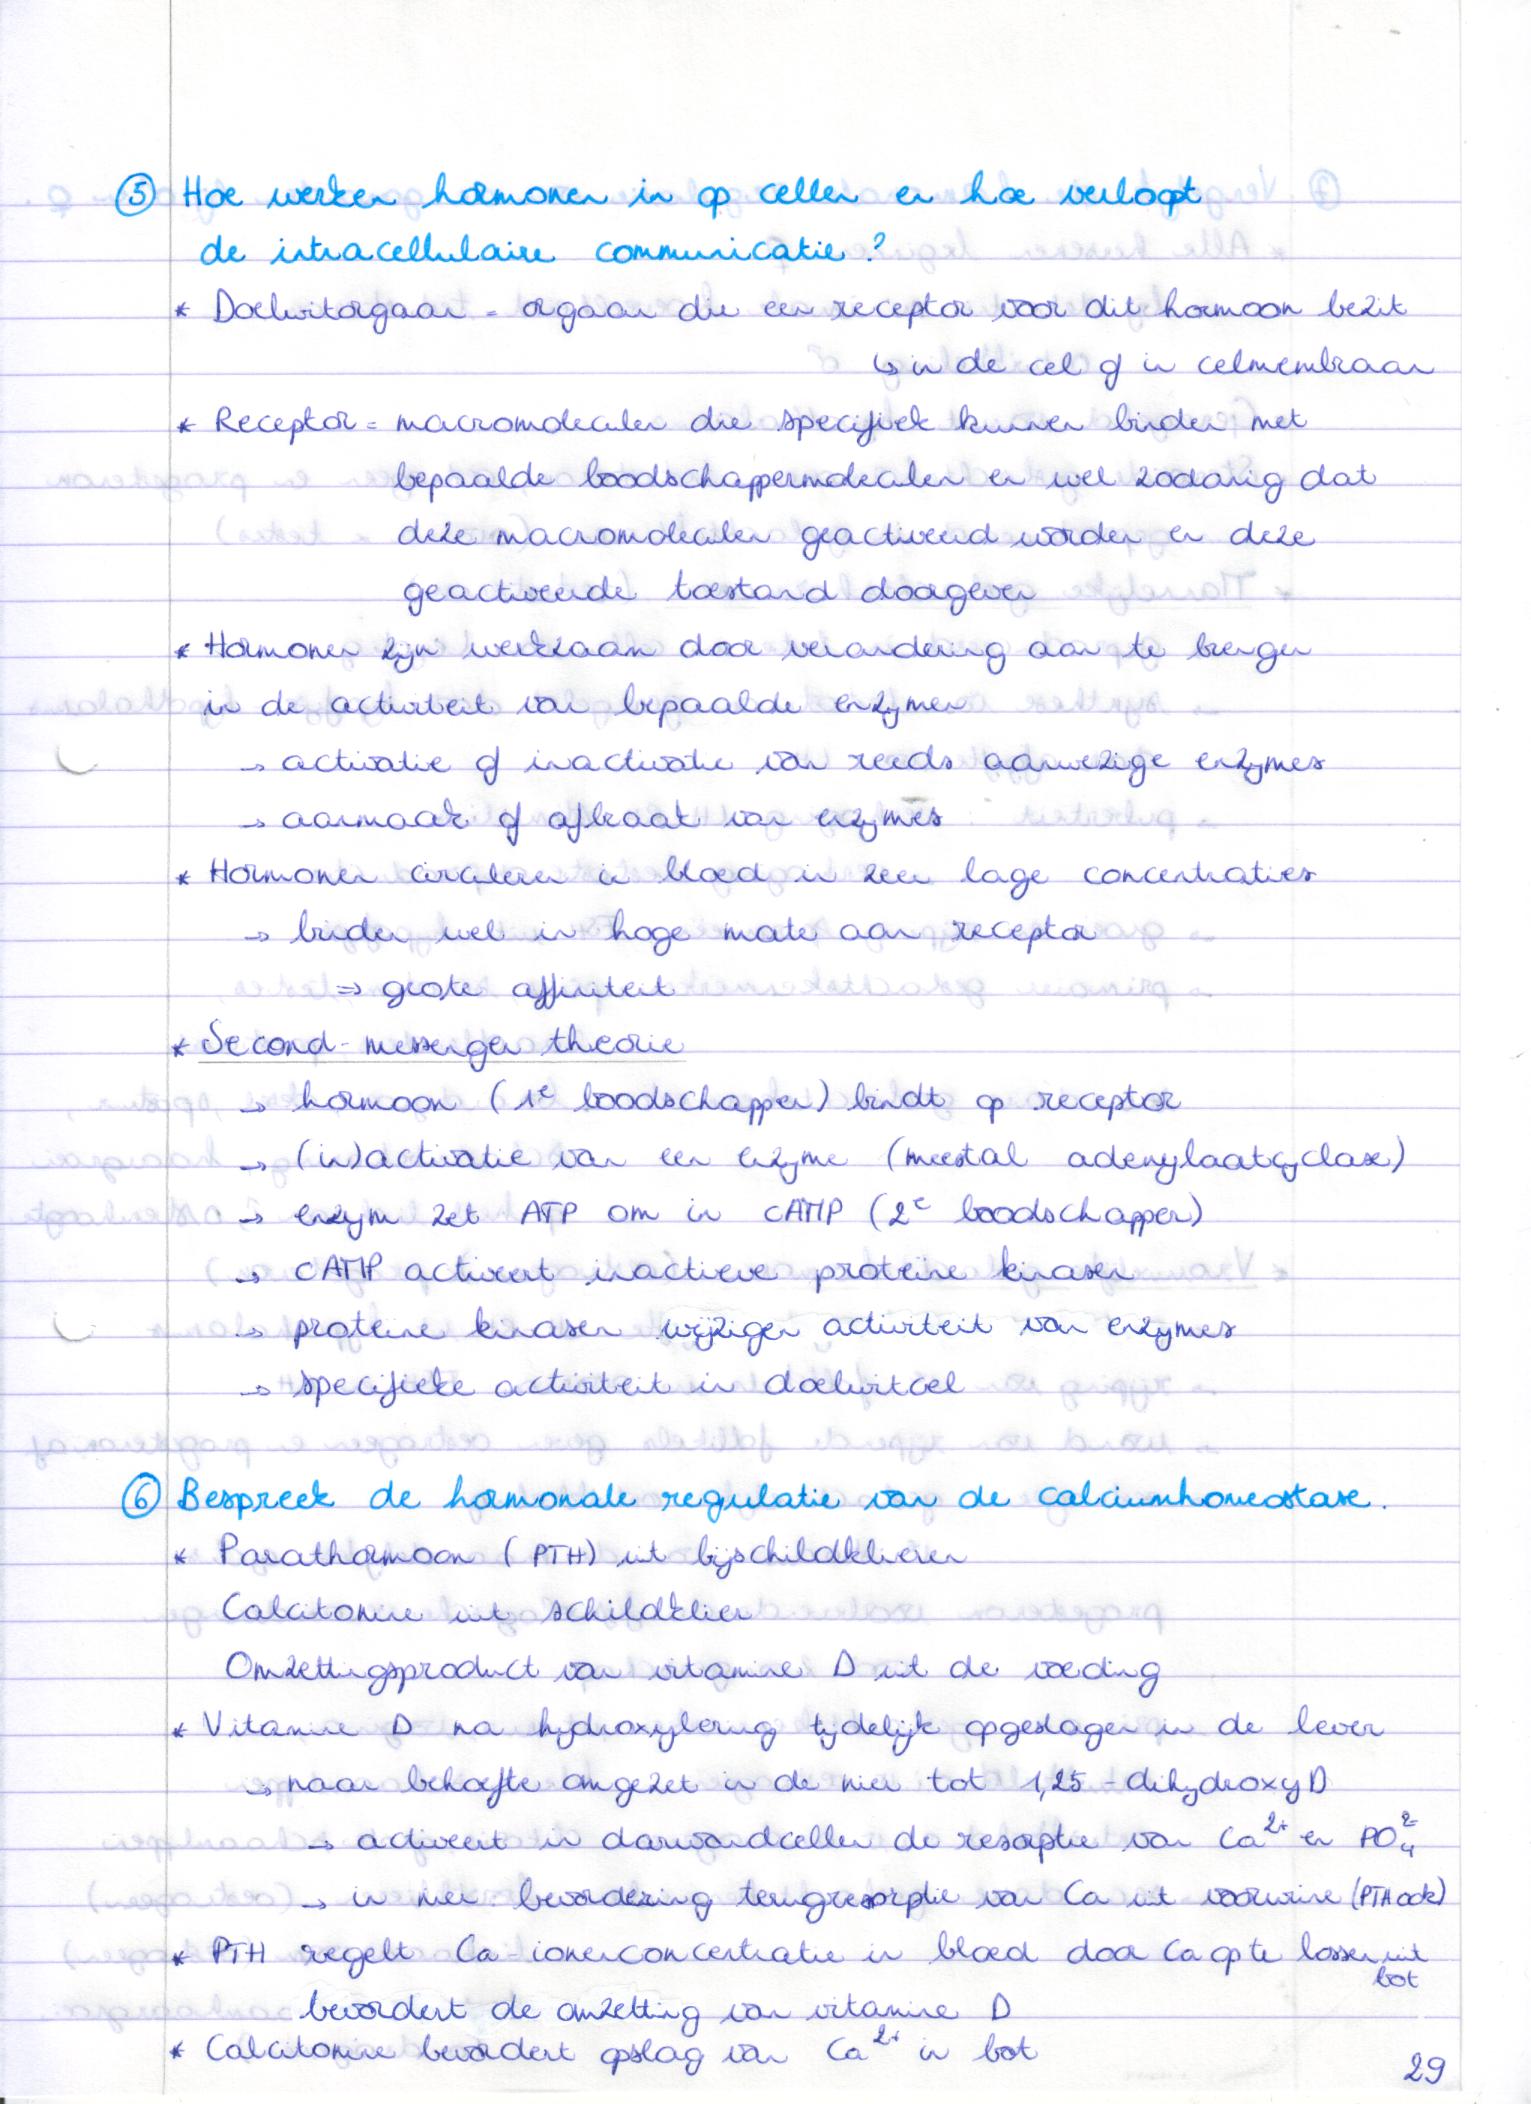 ⑤ Hoe werken hormonen in op cellen en hoe verloopt
de intracellulaire communicatie?
* Doelwitorgaan = orgaan die een receptor voor dit hormoon bezit
↳ in de cel of in celmembraan
* Receptor = macromoleculen die specifiek kunnen binden met
bepaalde boodschappermoleculen en wel zodanig dat
deze macromoleculen geactiveerd worden en deze
geactiveerde toestand doorgeven
* Hormonen zijn werkzaam door verandering aan te brengen
in de activiteit van bepaalde enzymen
→ activatie of inactivatie van reeds aanwezige enzymes
→ aanmaak of afbraak van enzymes
* Hormonen circuleren in bloed in zeer lage concentraties
→ binden wel in hoge mate aan receptor
⇒ grote affiniteit
* Second-messenger theorie
→ hormoon (1e boodschapper) bindt op receptor
→ (in)activatie van een enzyme (meestal adenylaatcyclase)
→ enzym zet ATP om in cAMP (2e boodschapper)
→ cAMP activeert inactieve proteïne kinasen
→ proteïne kinasen wijzigen activiteit van enzymes
→ specifieke activiteit in doelwitcel
⑥ Bespreek de hormonale regulatie van de calciumhomeostase.
* Parathormoon (PTH) uit bijschildklieren
Calcitonine uit schildklier
Omzettingsproduct van vitamine D uit de voeding
* Vitamine D na hydroxylering tijdelijk opgeslagen in de lever
→ naar behoefte omgezet in de nier tot 1,25-dihydroxy D
→ activeert in darmwandcellen de resorptie van Ca²⁺ en PO₄²⁻
→ in nier: bevordering terugresorptie van Ca uit voorurine (PTH ook)
* PTH regelt Ca-ionenconcentratie in bloed door Ca op te lossen uit
bot
bevordert de omzetting van vitamine D
* Calcitonine bevordert opslag van Ca²⁺ in bot
29